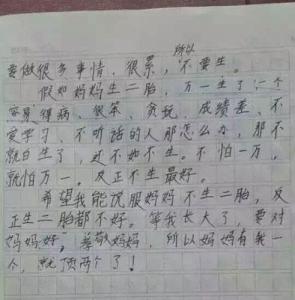 所以
要做很多事情，很累，不要生。
假如妈妈生二胎，万一生了一个
容易得病、很笨、贪玩、成绩差、不
爱学习、不听话的人那怎么办，那不
就白生了，还不如不生。不怕一万，
就怕万一。反正不生最好。
希望我能说服妈妈不生二胎，反
正生二胎都不好。等我长大了，要对
妈妈好，尊敬妈妈，所以妈妈有我一
个，就顶两个了！